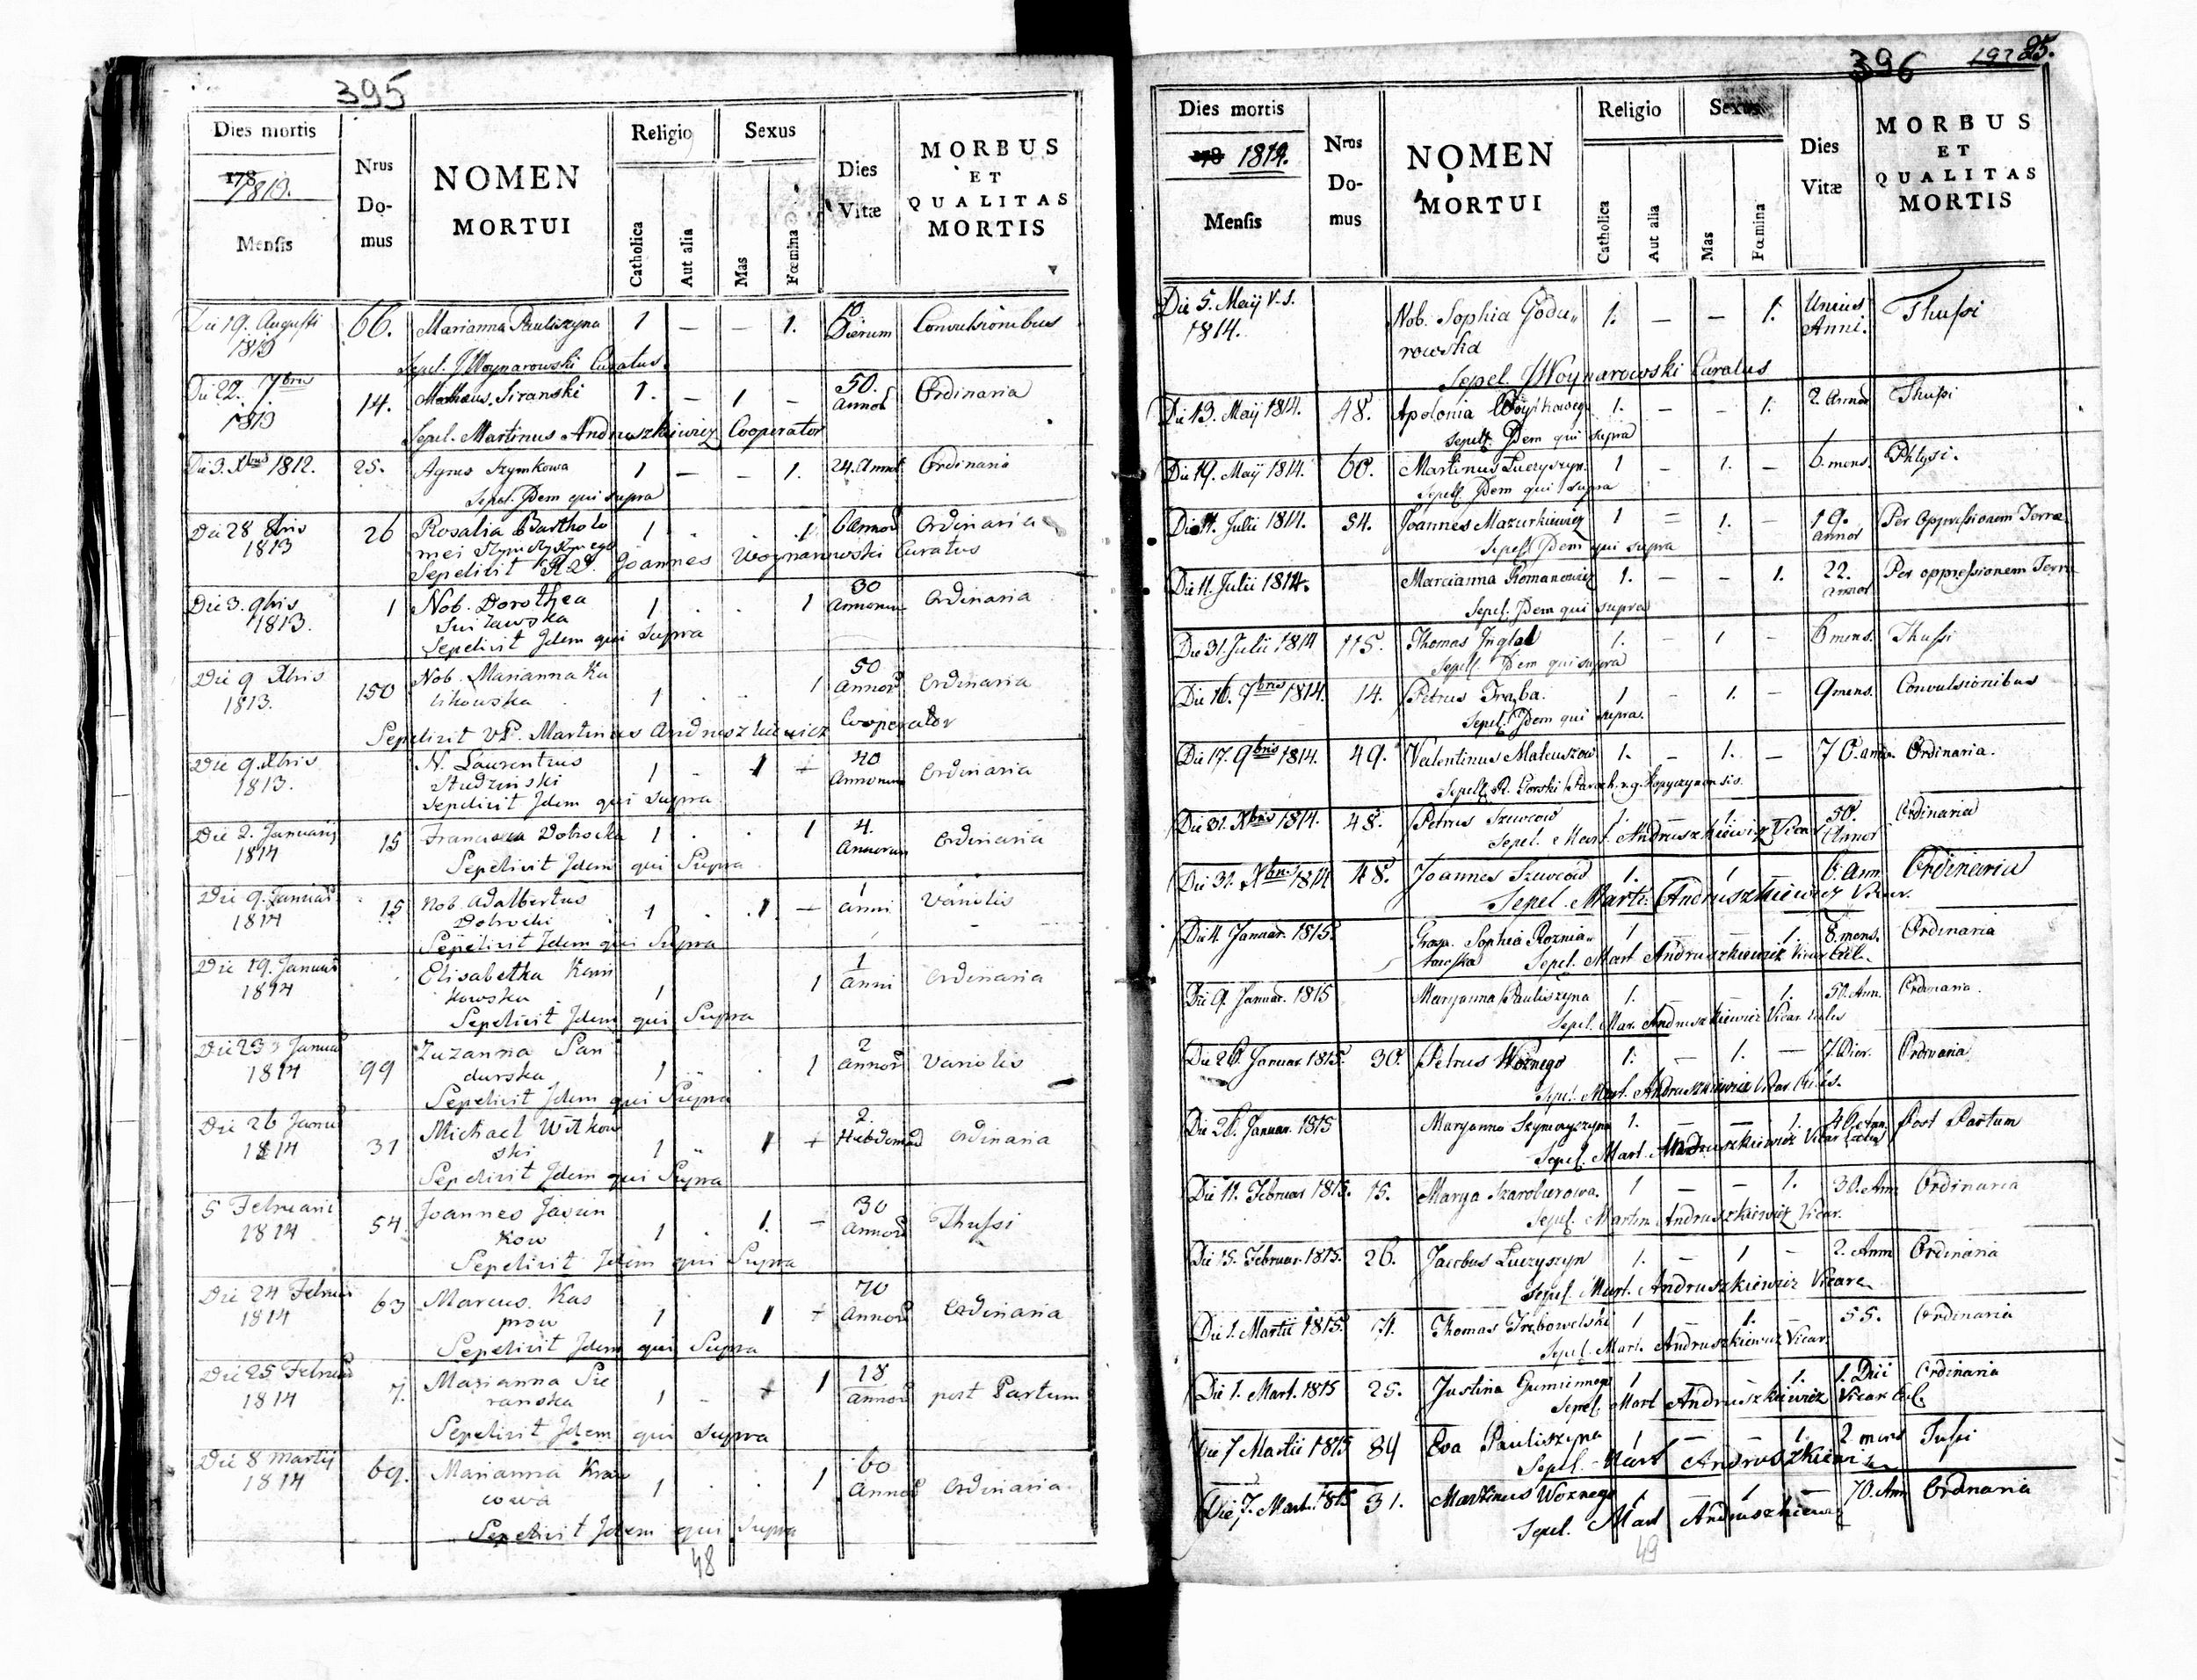 395
Dies mortis
178
1813.
Mensis
Nrus
Do-
mus
NOMEN
MORTUI
Religio
Catholica
Aut alia
Sexus
Mas
Fœmina
Dies
Vitæ
MORBUS
ET
QUALITAS
MORTIS
Die 19. Augusti 66. Marianna Pauliszyna 1 — — 1. 10 Convulsionibus
1813 Dierum
Sepel. J Woynarowski Curatus.
Die 22. 7bris 14. Mathæus Siranski 1. — 1 — 50. Ordinaria
1813 Annor
Sepel. Martinus Andruszkiewicz Cooperator
Die 3. Xbris 1812. 25. Agnes Szymkowa 1 — — 1. 24. Annor Ordinaria
Sepel. Idem qui supra
Die 28 8bris 26 Rosalia Bartholo 1 . . 1 6 Annor Ordinaria
1813 mei
Sepelivit Joannes Woynarowski Curatus
Die 3. 9bris 1 Nob. Dorothea 1 . . 1 30 Ordinaria
1813. Annorum
Sepelivit Idem qui supra
Die 9 Xbris 150 Nob. Marianna Ku 1 . . 1 50 Ordinaria
1813. likowska Annor
Sepelivit VP. Martinus Andruszkiewicz Cooperator
Die 9. Xbris N. Laurentius 1 - 1 + 40 Ordinaria
1813. Studzinski Annorum
Sepelivit Idem qui supra
Die 2. Januarij 15 Francisca Dobrocka 1 . . 1 4. Ordinaria
1814 Annorum
Sepelivit Idem qui Supra
Die 9. Januar 15 Nob. Adalbertus 1 . 1 — 1 Variolis
1814 Dobrocki Anni
Sepelivit Idem qui Supra
Die 19. Januar Elisabetha Kani 1 1 1 Ordinaria
1814 kowska Anni
Sepelivit Idem qui Supra
Die 23 Januar 99 Zuzanna San 1 . 1 2 Variolis
1814 durska Annor
Sepelivit Idem qui Supra
Die 26 Janu 31 Michael Witkow 1 1 + 2. Ordinaria
1814 ski Hebdomad
Sepelivit Idem qui Supra
5 Februarii 54 Joannes Jasin 1 . 1. — 30 Thussi
1814 kow Annor
Sepelivit Idem qui Supra
Die 24 Februar 63 Marcus Kas 1 1 + 70 Ordinaria
1814 prow Annor
Sepelivit Idem qui Supra
Die 25 Februar 7. Marianna Sie 1 - + 1 18 post Partum
1814 ranska Annor
Sepelivit Idem qui supra
Die 8 martij 69. Marianna Kraw 1 . . 1 60 Ordinaria
1814 cowa Annor
Sepelivit Idem qui supra
48
396
25.
Dies mortis
178 1814.
Mensis
Nros
Do-
mus
NOMEN
MORTUI
Religio
Catholica
Aut alia
Sexus
Mas
Fœmina
Dies
Vitæ
MORBUS
ET
QUALITAS
MORTIS
Die 5. Maij v.s. Nob. Sophia Godu„ 1. — — 1. Unius Thussi
1814. rowska Anni.
Sepel. J Woynarowski Curatus
Die 13. Maij 1814. 48. Apolonia 1. — — 1. 2. Annor Thussi
Sepell. Idem qui supra
Die 19. Maij 1814. 60. Martinus Luczyszyn 1 — 1. — 6. mens. Phtysi.
Sepell. Idem qui supra
Die 11. Julii 1814. 54. Joannes Mazurkiewicz 1 = 1. — 19. Per Oppressionem Terræ
annor
Sepell. Idem qui supra
Die 11. Julii 1814. Marcianna Romanowicz 1. — — 1. 22. Per oppressionem Terræ
annor
Sepel. Idem qui supra
Die 31. Julii 1814 115. Thomas Inglot 1. — 1 — 6 mens. Thussi
Sepell. Idem qui supra
Die 16. 7bris 1814. 14. Petrus Trąba. 1 — 1. — 9 mens. Convulsionibus
Sepel. Idem qui supra.
Die 17. 9bris 1814. 49. Valentinus Mateuszow 1. — 1. — 70. ann. Ordinaria.
Sepell. R. Gorski Paroch. r.g. Kopyczynensis.
Die 31. Xbris 1814. 48. Petrus Szewcow 1. — 1. 50. Ordinaria
Annor
Sepel. Mart. Andruszkiewicz Vicar
Die 31. Xbris 1814 48. Joannes Szewcow 1. 1 6. Ann. Ordinaria
Sepel. Mart. Andruszkiewicz Vicar.
Die 4. Januar. 1815. Sophia Roznia„ 1 — — 1. 8. mens. Ordinaria
towska Sepel. Mart Andruszkiewicz Vicar Ecel.
Die 9. Januar. 1815 Maryanna Pauliszyna 1. — — 1. 50. Ann. Ordinaria.
Sepel. Mar. Andruszkiewicz Vicar Eccles
Die 20. Januar. 1815. 30. Petrus Woznego 1. — 1. — 7. Dier. Ordinaria
Sepel. Mart. Andruszkiewicz Vicar
Die 26. Januar. 1815 Maryanna Szymczyszyna 1. — — 1. 40. Ann. Post Partum
Sepel. Mart. Andruszkiewicz Vicar
Die 11. Februar 1815. 15. Marya Szaroburowa. 1 — — 1. 30. Ann Ordinaria
Sepel. Martin Andruszkiewicz Vicar.
Die 15. Februar. 1815. 26. Jacobus Luczyszyn 1. — 1 — 2. Ann Ordinaria
Sepel. Mart. Andruszkiewicz Vicare
Die 1. Martii 1815. 71. Thomas Trębowelski 1 — 1. — 55. Ordinaria
Sepel. Mart. Andruszkiewicz Vicar.
Die 1. Mart. 1815 25. Justina Gumiennego 1 — — 1. 1. Diei Ordinaria
Sepel. Mart Andruszkiewicz Vicar Ecl.
Die 7 Martii 1815 84 Eva Pauliszyna 1 — — 1. 2 mens Tussi
Sepel. Mart Andruszkiewicz
Die 7. Mart. 1815 31. Martinus Woznego 1 — 1 — 70. Ann Ordnaria
Sepel. Mart Andruszkiewicz
49